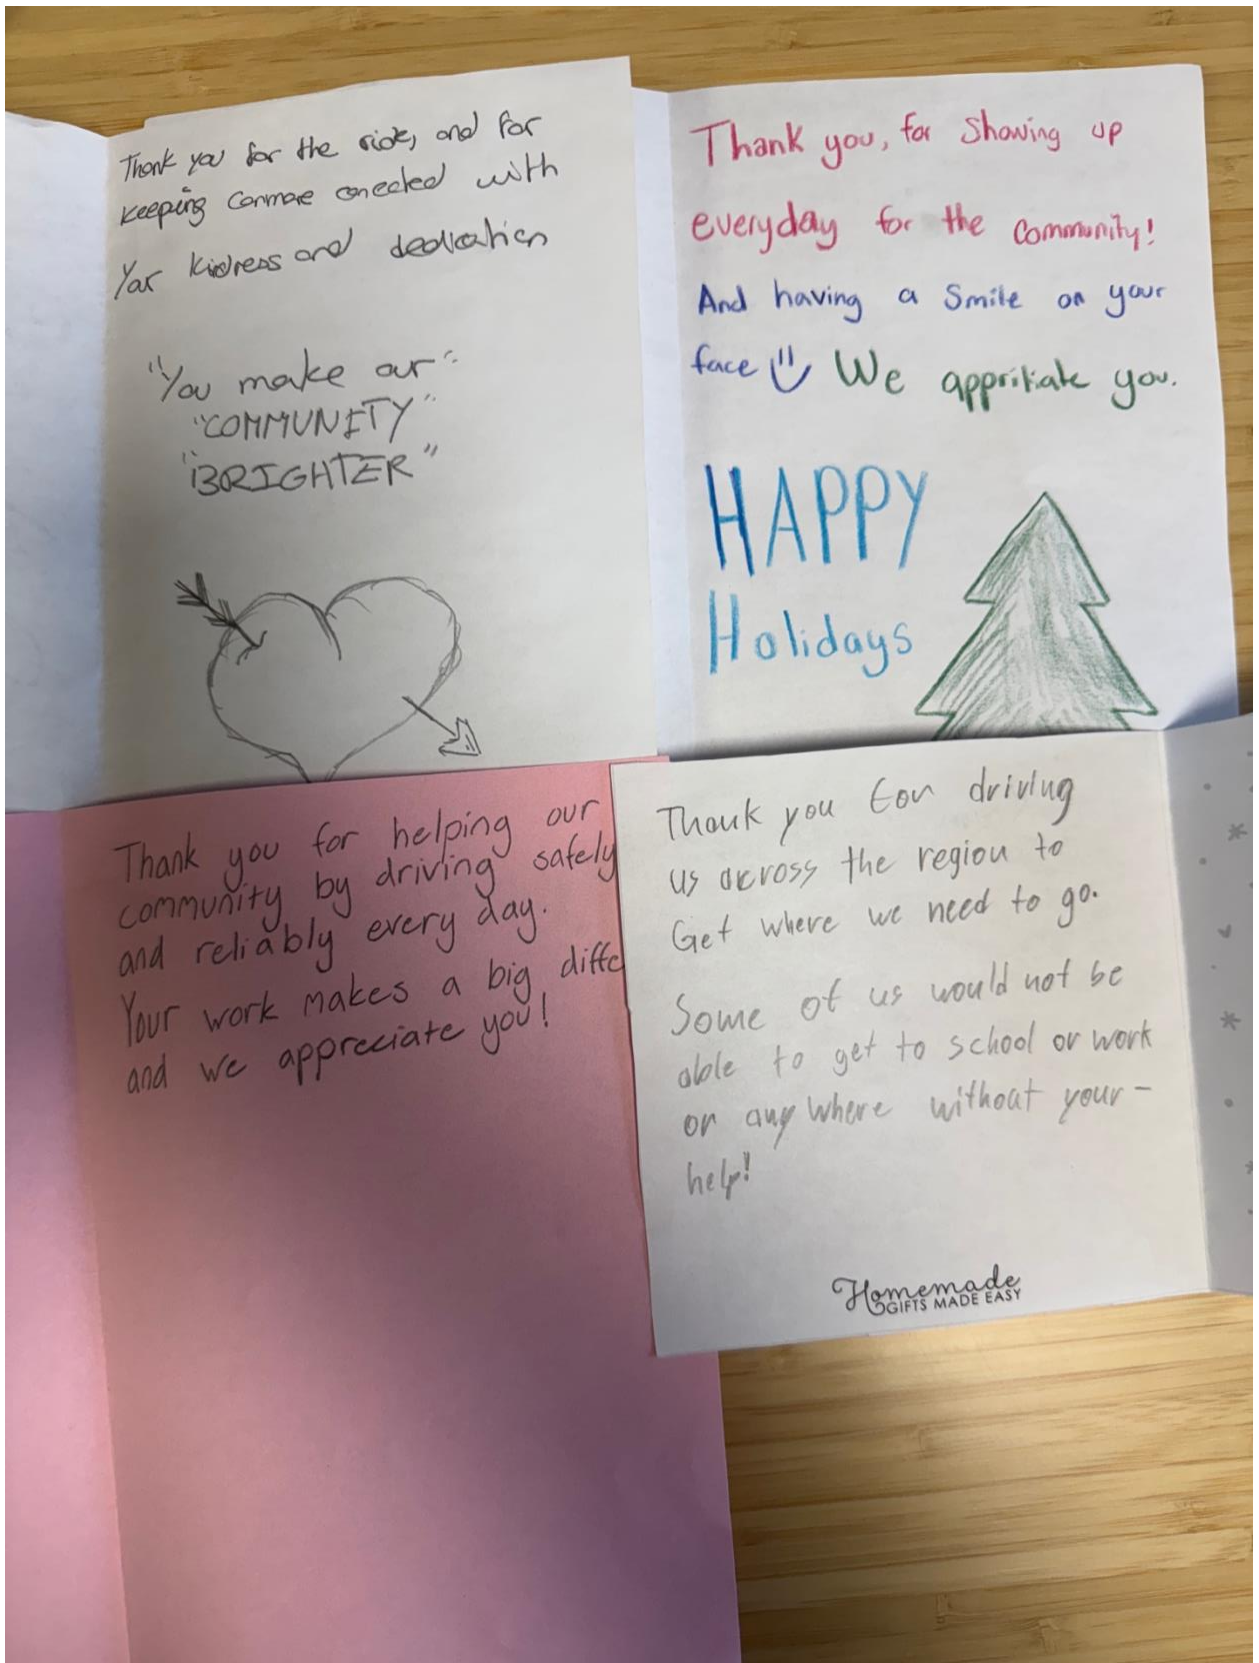 Thank you for the ride, and for
keeping Canmore conected with
Your kindness and dedication
"You make our"
"COMMUNITY"
"BRIGHTER"
Thank you, for showing up
everyday for the community!
And having a smile on your
face We appritiate you.
HAPPY
Holidays
Thank you for helping our
community by driving safely
and reliably every day.
Your work makes a big diffe
and we appreciate you!
Thank you for driving
us across the region to
Get where we need to go.
Some of us would not be
able to get to school or work
or anywhere without your-
help!
Homemade
GIFTS MADE EASY